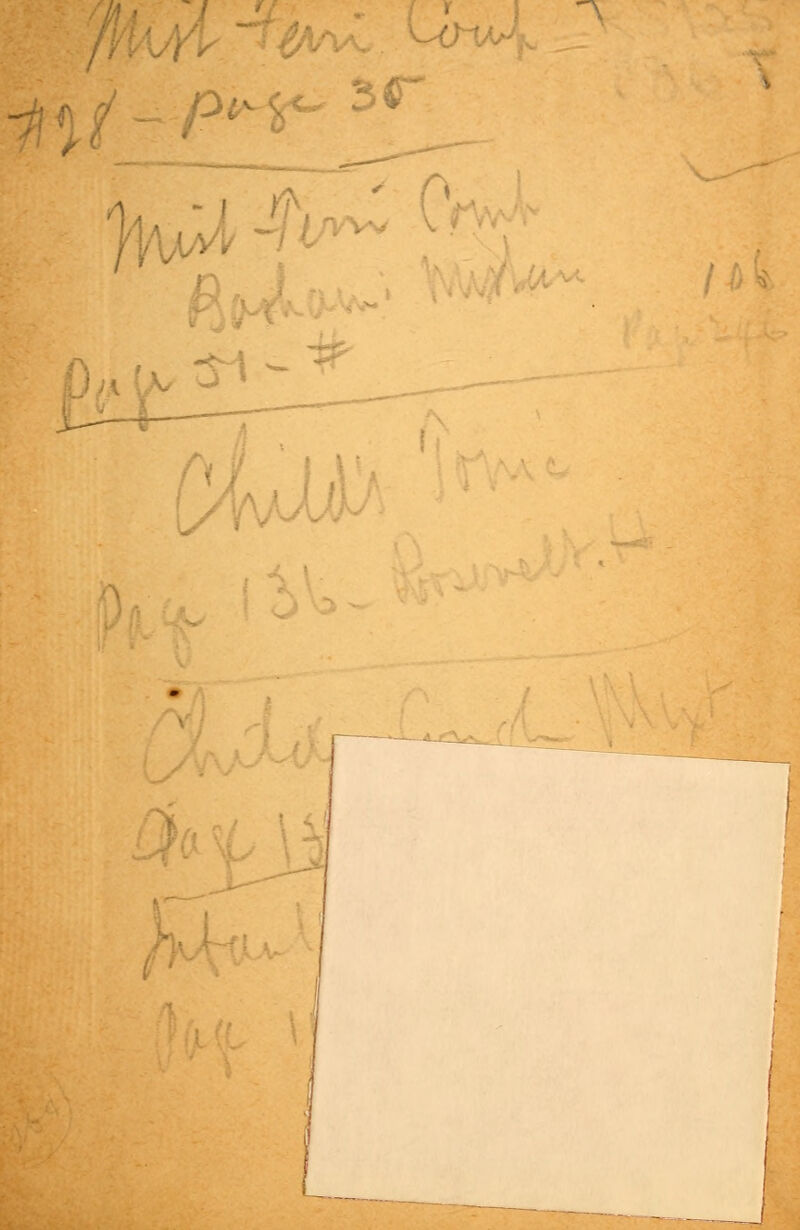 Mist Ferri Comp
#28 - Page 35
Mist Ferri Comp
Basham's Mixture 106
Page 51 - # Page 246
Child's Tonic
Page 136 - Roosevelt. H
Child Cough Mixt
Page 13
Infant
Page 1